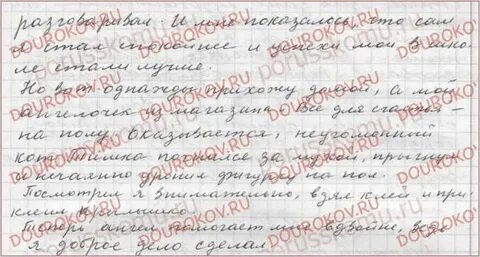 разговаривал. И мне показалось, что сам
я стал спокойнее и успехи мои в шко-
ле стали лучше.
Но вот однажды прихожу домой, а мой
ангелочек из магазина "Все для счастья" -
на полу. Оказывается, неугомонный
кот Тишка погнался за мухой, прыгнул
и нечаянно уронил фигурку на пол.
Посмотрел я внимательно, взял клей и при-
клеил крылышко.
Теперь ангел помогает мне вдвойне, ведь
я доброе дело сделал
DOUROKOV.RU
porusskomu.ru